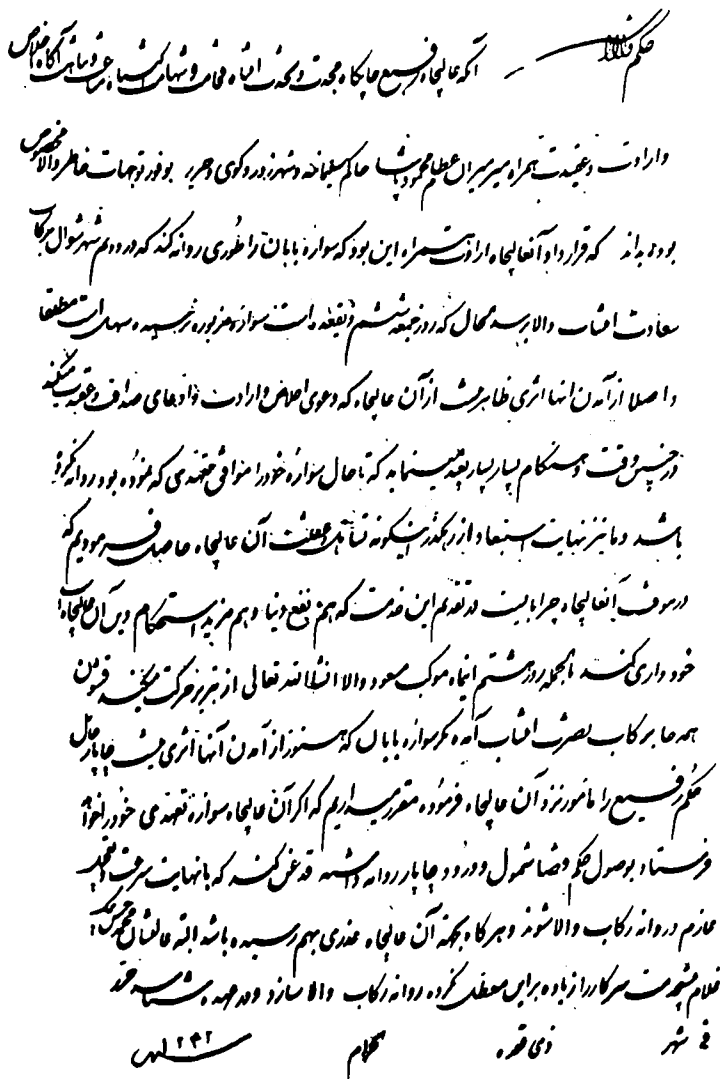 حکم والا
آنکه عالیجاه رفیع جایگاه مجدت و نجدت انتباه فخامت و شهامت اکتناه آگاه خلاص
و ارادت و عقیدت همراه میرمیران عظام محمود پاشا حاکم سلیمانیه و شهرزور و کوی و حریر بوفور توجهات خاطر والا مخصوص
بوده بداند که قرارداد آنعالیجاه ارادت همراه این بود که سواره بابان را طوری روانه کند که در دویم شهر شوال برکاب
سعادت انتساب والا برسد تا حال که روز جمعه ششم ذیقعده است سواره مزبوره نرسیده سهل است مطلقا
و اصلا از آمدن آنها اثری ظاهر نیست از آن عالیجاه که دعوی اخلاص و ارادت و ادعای صداقت و عقیدت میکند
در چنین وقت و هنگام بسیار بسیار بعید مینماید که تا حال سواره خود را موافق تعهدی که نموده بود روانه نکرده
باشد و ما نیز نهایت استبعاد از رهگذر اینگونه تساهل و غفلت آن عالیجاه حاصل فرمودیم که
در موقف آنعالیجاه چرا بایست در تقدیم این خدمت که هم نفع دنیا و هم مزید استحکام دین آن عالیجاه است
خودداری کند بالجمله روز هشتم اینماه موکب مسعود والا انشاءالله تعالی از تبریز حرکت میکند قشون
همه جا برکاب نصرت انتساب آمده مگر سواره بابان که هنوز از آمدن آنها اثری نیست چاپار حامل
حکم رفیع را مأمور نزد آن عالیجاه فرموده مقرر میداریم که اگر آن عالیجاه سواره تعهدی خود را نخواهد
فرستاد بوصول حکم قضا شمول و ورود چاپار روانه داشته قدغن کند که با نهایت سرعت و تعجیل
عازم و روانه رکاب والا شوند و هرگاه بجهة آن عالیجاه عذری بهم رسیده باشد البته عالیشان محمد حسن بیک
غلام پیشخدمت سرکار را زیاده بر این معطل نکرده روانه رکاب والا سازد و در عهده شناسد
فی شهر ذی قعده الحرام ۱۲۴۲